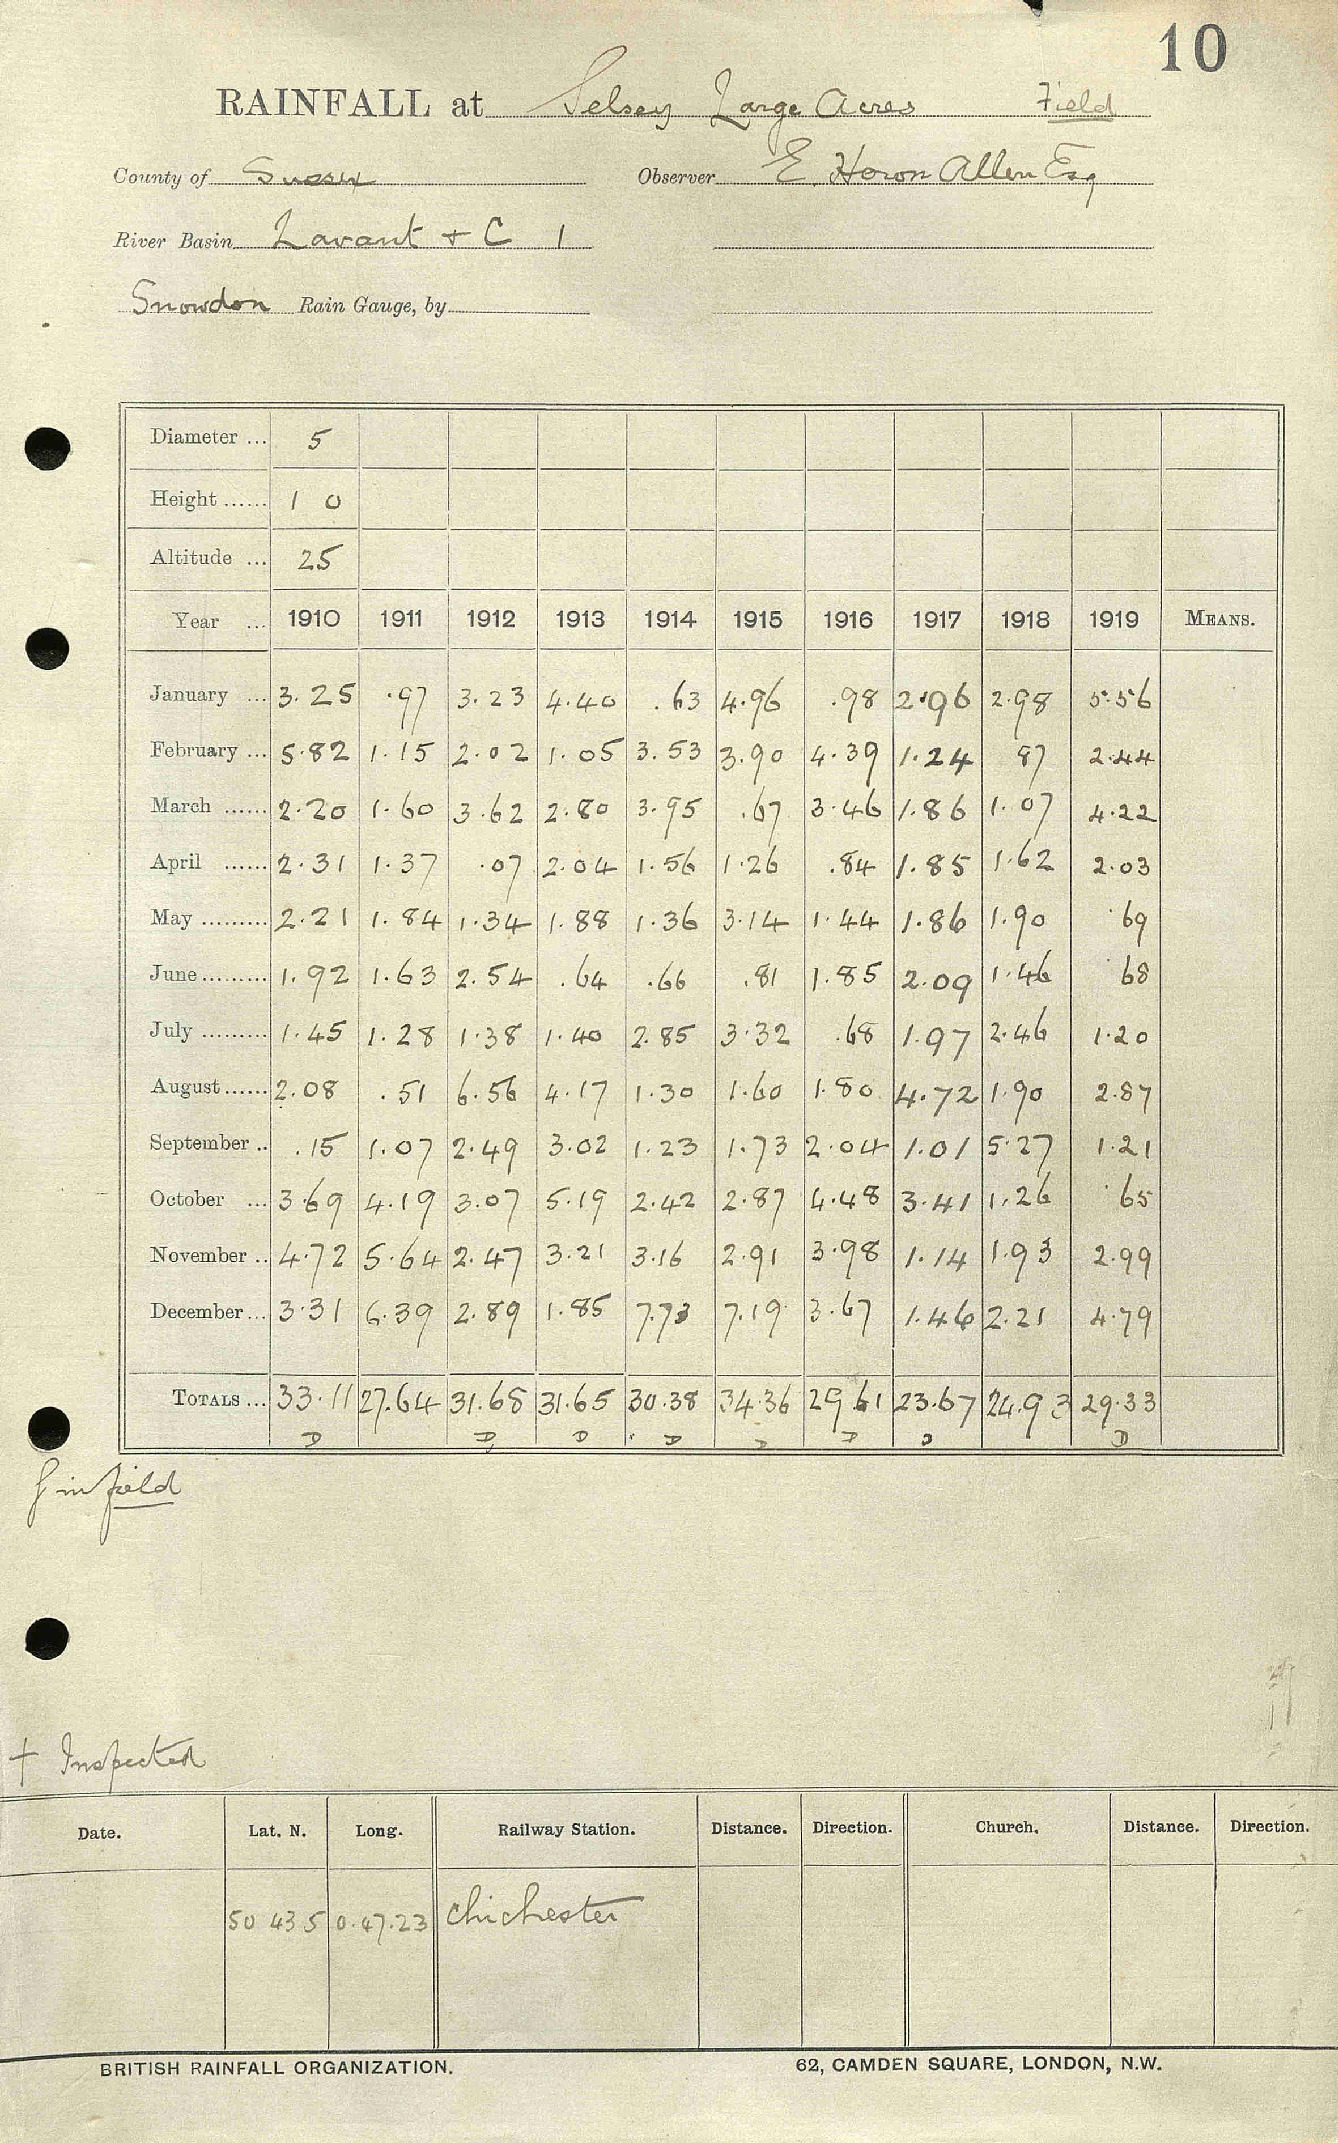 10
RAINFALL at Selsey Large Acres Field
County of Sussex Observer E. Heron Allen Esq
River Basin Lavant + C 1
Snowdon Rain Gauge, by
Diameter ... 5
Height ...... 1 0
Altitude ... 25
Year ... 1910 1911 1912 1913 1914 1915 1916 1917 1918 1919 MEANS.
January ... 3.25 .97 3.23 4.40 .63 4.96 .98 2.96 2.98 5.56
February ... 5.82 1.15 2.02 1.05 3.53 3.90 4.39 1.24 87 2.44
March ...... 2.20 1.60 3.62 2.80 3.95 .67 3.46 1.86 1.07 4.22
April ...... 2.31 1.37 .07 2.04 1.56 1.26 .84 1.85 1.62 2.03
May ......... 2.21 1.84 1.34 1.88 1.36 3.14 1.44 1.86 1.90 .69
June ......... 1.92 1.63 2.54 .64 .66 .81 1.85 2.09 1.46 .68
July ......... 1.45 1.28 1.38 1.40 2.85 3.32 .68 1.97 2.46 1.20
August ...... 2.08 .51 6.56 4.17 1.30 1.60 1.80 4.72 1.90 2.87
September .. .15 1.07 2.49 3.02 1.23 1.73 2.04 1.01 5.27 1.21
October ... 3.69 4.19 3.07 5.19 2.42 2.87 4.48 3.41 1.26 .65
November .. 4.72 5.64 2.47 3.21 3.16 2.91 3.98 1.14 1.93 2.99
December ... 3.31 6.39 2.89 1.85 7.73 7.19 3.67 1.46 2.21 4.79
TOTALS ... 33.11 27.64 31.68 31.65 30.38 34.36 29.61 23.67 24.93 29.33
D D D D D D D D
in field
+ Inspected
Date. Lat. N. Long. Railway Station. Distance. Direction. Church. Distance. Direction.
50 43 5 0.47.23 Chichester
BRITISH RAINFALL ORGANIZATION. 62, CAMDEN SQUARE, LONDON, N.W.